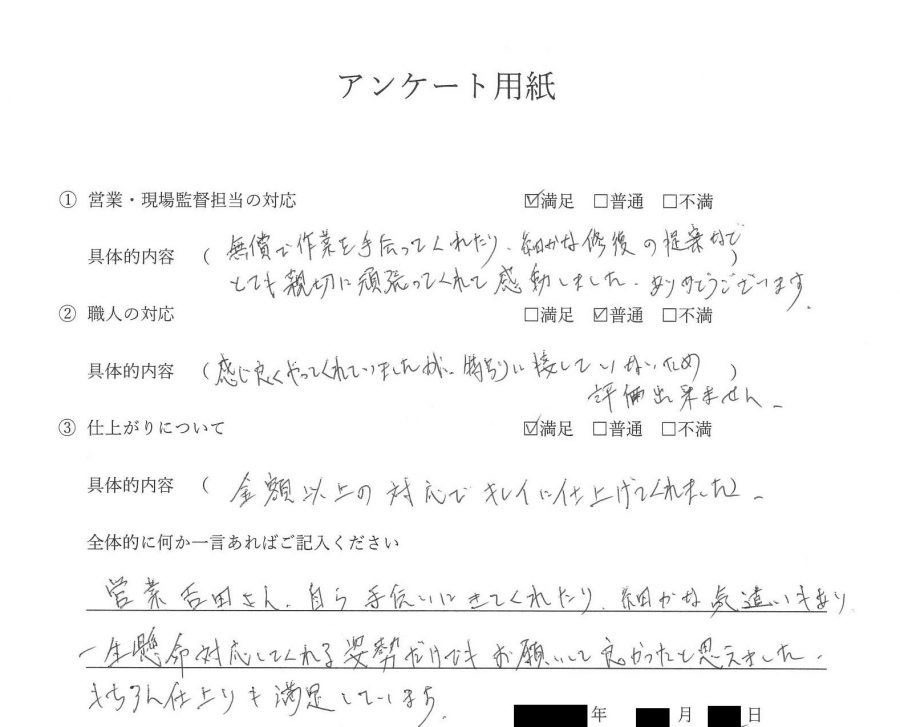 アンケート用紙
① 営業・現場監督担当の対応 ☑満足 □普通 □不満
具体的内容 ( 無償で作業を手伝ってくれたり、細かな修復の提案など
とても親切に頑張ってくれて感動しました。ありがとうございます。 )
② 職人の対応 □満足 ☑普通 □不満
具体的内容 ( 感じ良くやってくれていましたが、特別に接していないため )
評価出来ません。
③ 仕上がりについて ☑満足 □普通 □不満
具体的内容 ( 金額以上の対応でキレイに仕上げてくれました。 )
全体的に何か一言あればご記入ください
営業吉田さん、自ら手伝いにきてくれたり、細かな気遣いもあり
一生懸命対応してくれる姿勢だけでもお願いして良かったと思えました。
もちろん仕上りも満足しています。
年 月 日